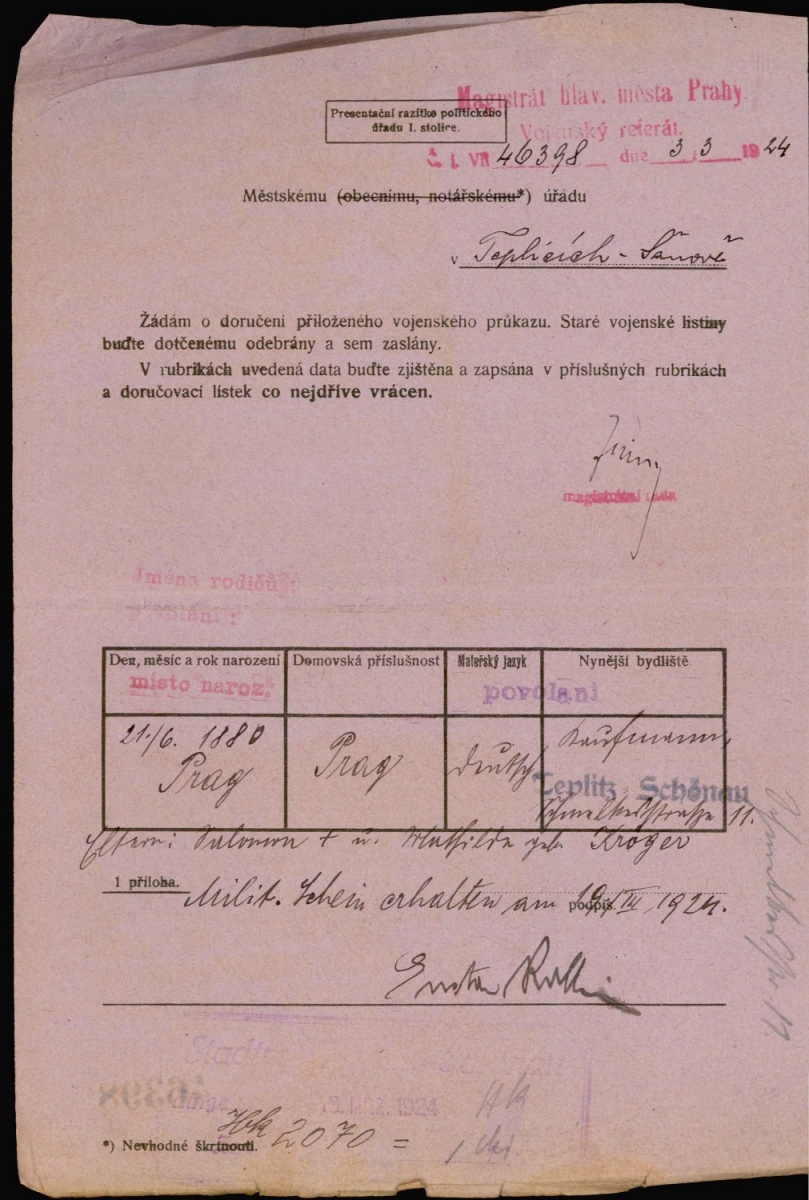 Magistrát hlav. města Prahy
Presentační razítko politického
úřadu I. stolice.
Vojenský referát.
Č. I. VII 46398 dne 3 3 1924
Městskému (obecnímu, notářskému*) úřadu
v Teplicích - Šanově
Žádám o doručení přiloženého vojenského průkazu. Staré vojenské listiny
buďte dotčenému odebrány a sem zaslány.
V rubrikách uvedená data buďte zjištěna a zapsána v příslušných rubrikách
a doručovací lístek co nejdříve vrácen.
magistrátní rada
Jména rodičů:
a volání:
Den, měsíc a rok narození Domovská příslušnost Mateřský jazyk Nynější bydliště
místo naroz. povolani
21./6. 1880 Prag deutsch Kaufmann,
Prag Teplitz-Schönau
Schmelkestrasse 11.
Eltern: Salomon † u. Mathilde geb. Kroger
1 příloha.
Milit. Schein erhalten am 19/III 1924.
podpis.
Gustav
46398
1924
Hk
2070 =
*) Nevhodné škrtnouti.